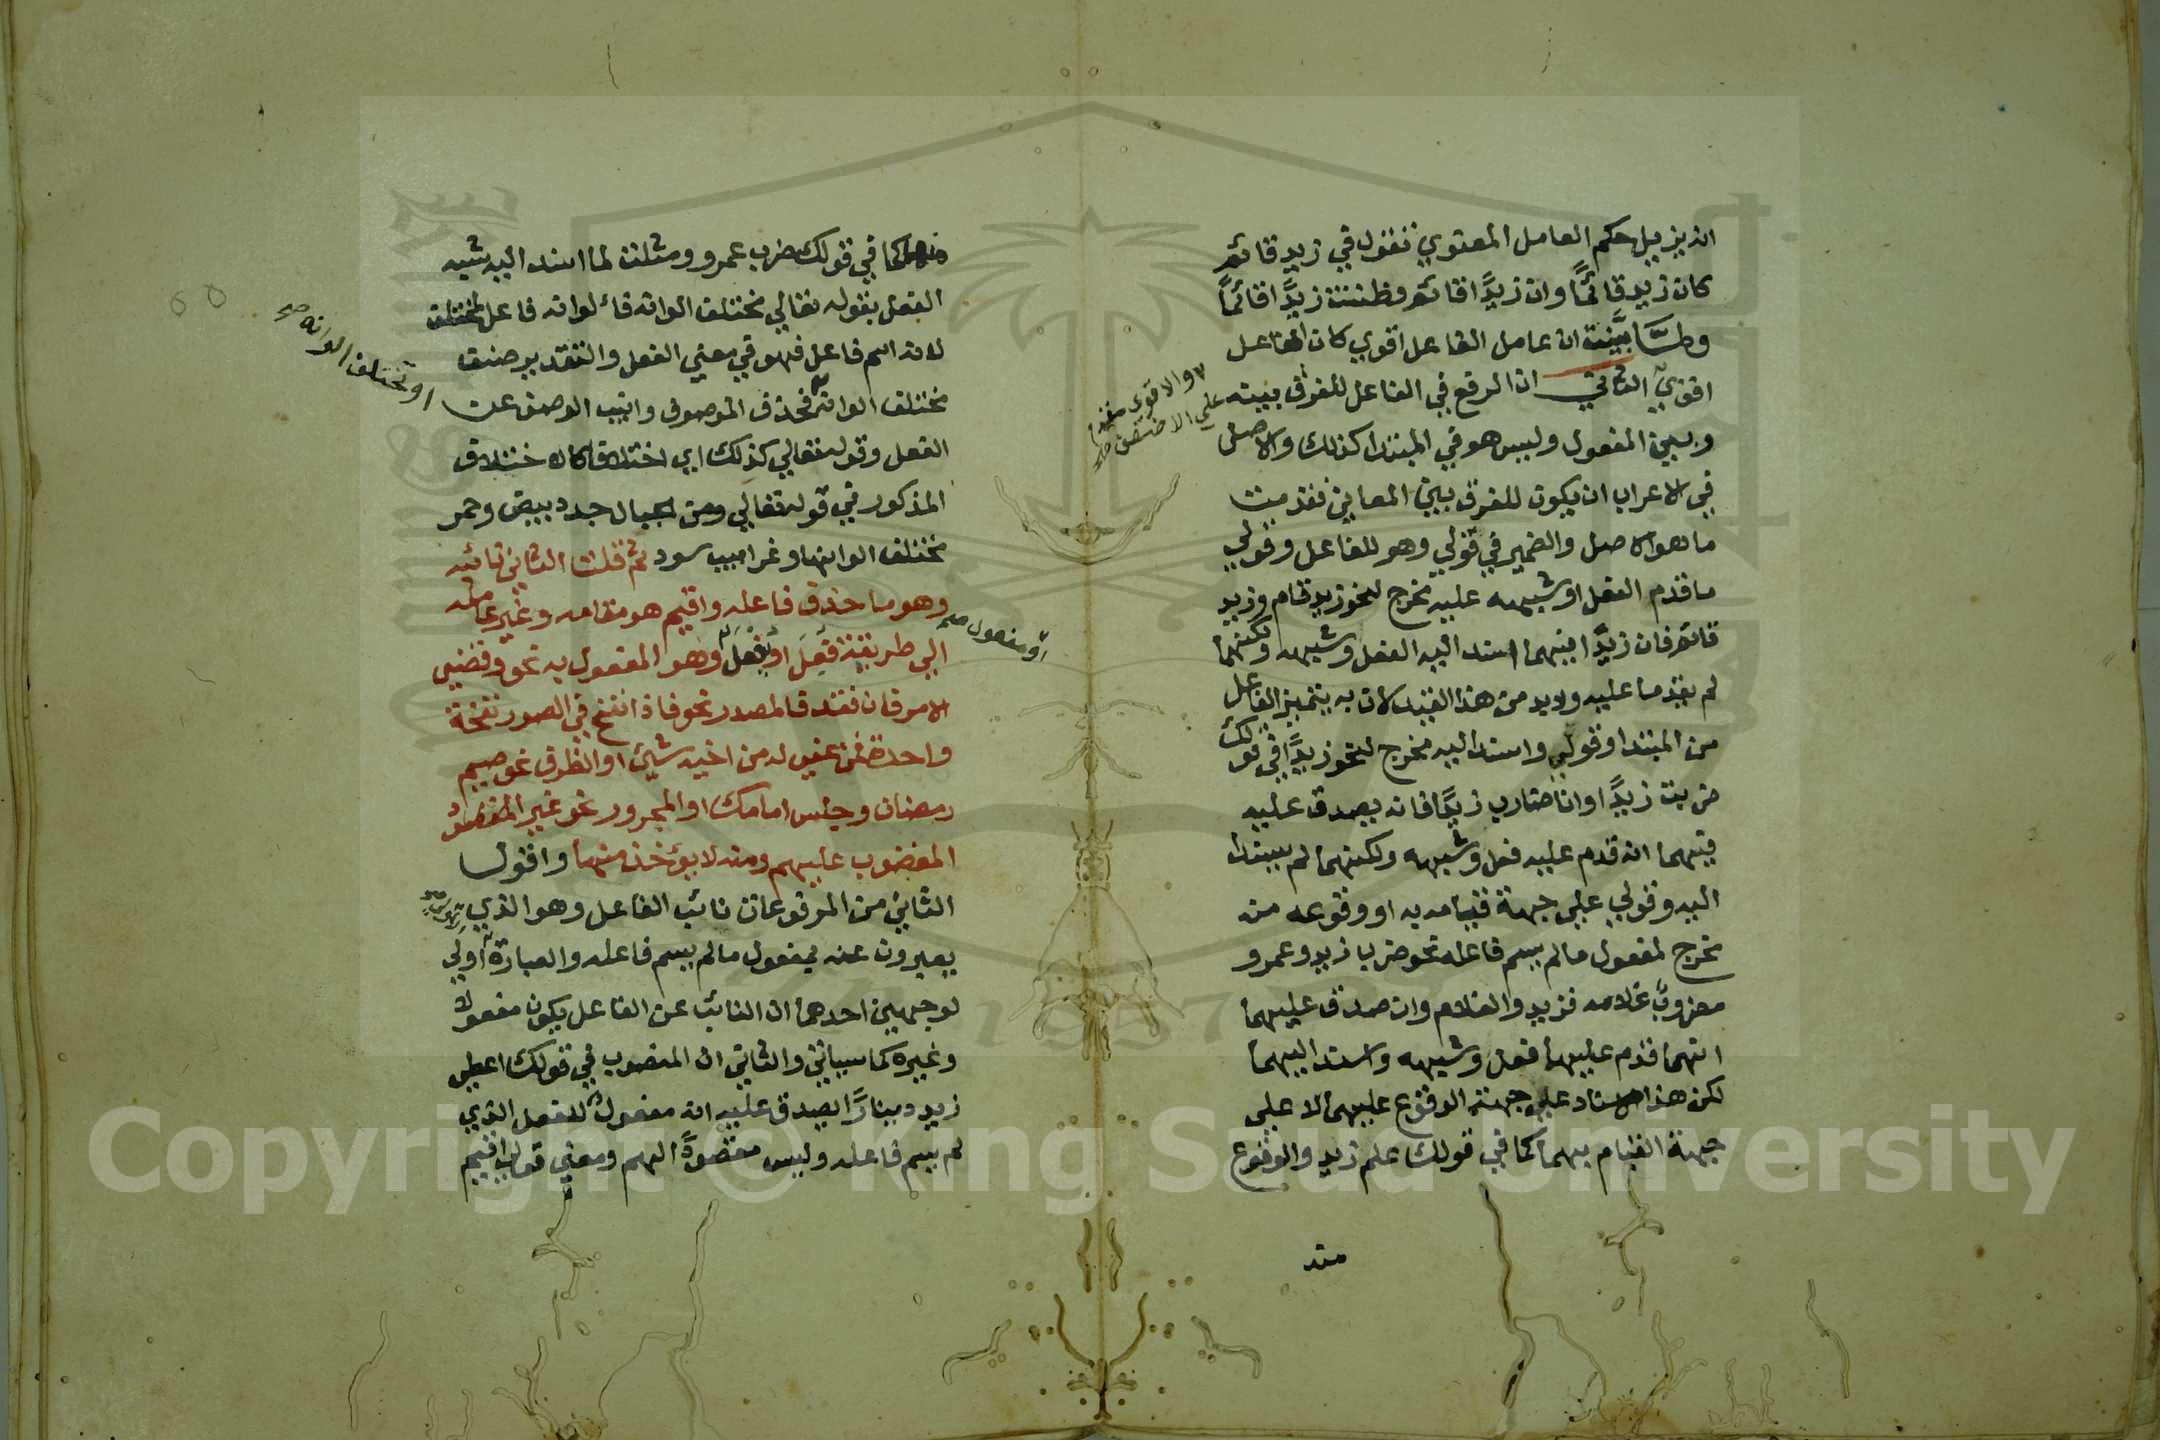 انه يزيل حكم العامل المعنوي نقول في زيد قائم
كان زيد قائمًا وان زيدًا قائم وظننت زيدًا قائمًا
ولمَّا بيَّنت ان عامل الفاعل اقوي كان الفاعل
اقوي الثاني ان الرفع في الفاعل للفرق بينه
والاقوي مقدم
علي الاضعف صح
وبين المفعول وليس هو في المبتدا كذلك والاصل
في الاعراب ان يكون للفرق بين المعاني فقدمت
ما هو الاصل والضمير في قولي وهو للفاعل وقولي
ما قدم الفعل او شبهه عليه مخرج لنحو زيد قام وزيد
قائم فان زيدًا فيهما اسند اليه الفعل وشبهه ولكنهما
لم يقدما عليه ولابد من هذا القيد لان به يتميز الفاعل
من المبتدا وقولي واسند اليه مخرج لنحو زيدًا في قولك
ضربت زيدًا او انا ضارب زيدًا فانه يصدق عليه
فيهما انه قدم عليه فعل وشبهه ولكنهما لم يسندا
اليه وقولي علي جهة قيامه به او وقوعه منه
مخرج لمفعول ما لم يسم فاعله نحو ضرب زيد وعمرو
مضروب غلامه فزيد والغلام وان صدق عليهما
انهما قدم عليهما فعل وشبهه واسند اليهما
لكن هذا الاسناد علي جهة الوقوع عليهما لا علي
جهة القيام بهما كما في قولك علم زيد والوقوع
منه
منهما كما في قولك ضرب عمرو ومثلت لما اسند اليه شبه
الفعل بقوله تعالي مختلف الوانه فالوانه فاعل لمختلف
لانه اسم فاعل فهو في معني الفعل والتقدير صنف
مختلف الوانه فحذف الموصوف وانيب الوصف عن
او تختلف الوانه صح
الفعل وقوله تعالي كذلك اي اختلافا كالاختلاف
المذكور في قوله تعالي ومن الجبال جدد بيض وحمر
مختلف الوانها وغرابيب سود ثم قلت الثاني نائبه
وهو ما حذف فاعله واقيم هو مقامه وغير عامله
الي طريقة فُعِلَ او يُفْعَلُ وهو المفعول به نحو وقضي
او مفعول صح
الامر فان فقد فالمصدر نحو فاذا نفخ في الصور نفخة
واحدة فمن عفي له من اخيه شيئ او الظرف نحو صيم
رمضان وجلس امامك او المجرور نحو غير المغضوب
المغضوب عليهم ومنه لا يؤخذ منها واقول
الثاني من المرفوعات نائب الفاعل وهو الذي
يعبرون عنه بمفعول ما لم يسم فاعله والعبارة اولي
لوجهين احدهما ان النائب عن الفاعل يكون مفعولا
وغيره كما سياتي والثاني ان المنصوب في قولك اعطي
زيد دينارًا يصدق عليه انه مفعول للفعل الذي
لم يسم فاعله وليس مقصودًا لهم ومعني قولي اقيم